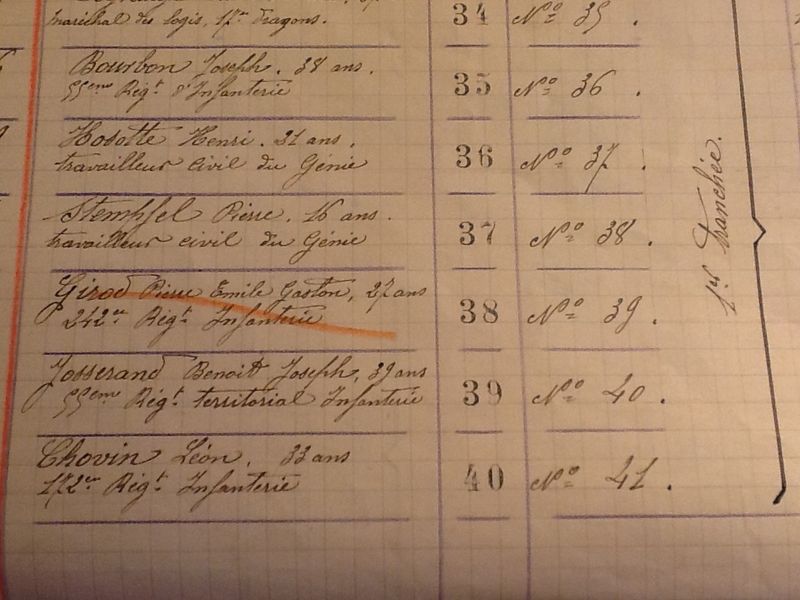 maréchal des logis, 17me Dragons. 34 No 35.
Bourbon Joseph. 38 ans.
55eme Régt d'Infanterie 35 No 36.
Hosotte Henri. 21 ans.
travailleur civil du Génie 36 No 37.
Stempfel Pierre. 16 ans.
travailleur civil du Génie 37 No 38.
Girod Pierre Emile Gaston, 27 ans
242me Régt Infanterie 38 No 39.
Josserand Benoit Joseph, 39 ans
55eme Régt territorial Infanterie 39 No 40.
Chovin Léon, 33 ans
172me Régt Infanterie 40 No 41.
1re Tranchée.